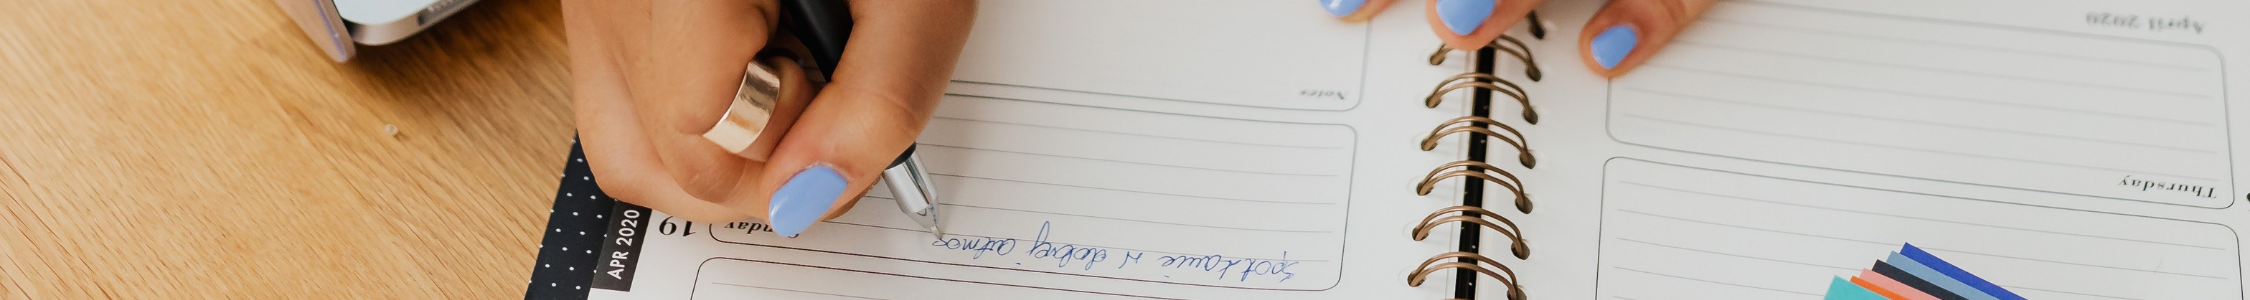 Thursday
April 2020
Spotkanie w dobrej atmos
Sunday
19
APR 2020
Notes